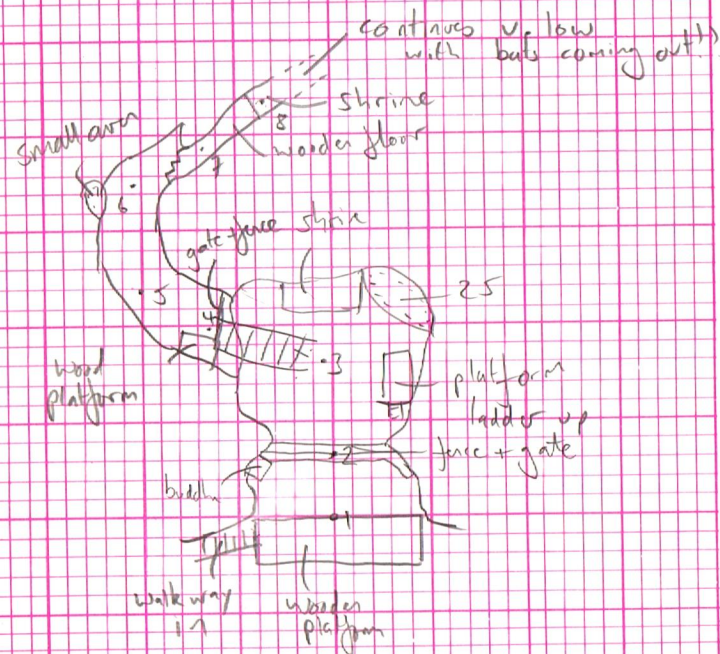 continues v. low
with bats coming out!!
shrine
8
wooden floor
7
small aven
6
gate + fence
shrine
5
25
4
3
wood
platform
platform
ladder up
2
fence + gate
buddha
1
walkway
in
wooden
platform